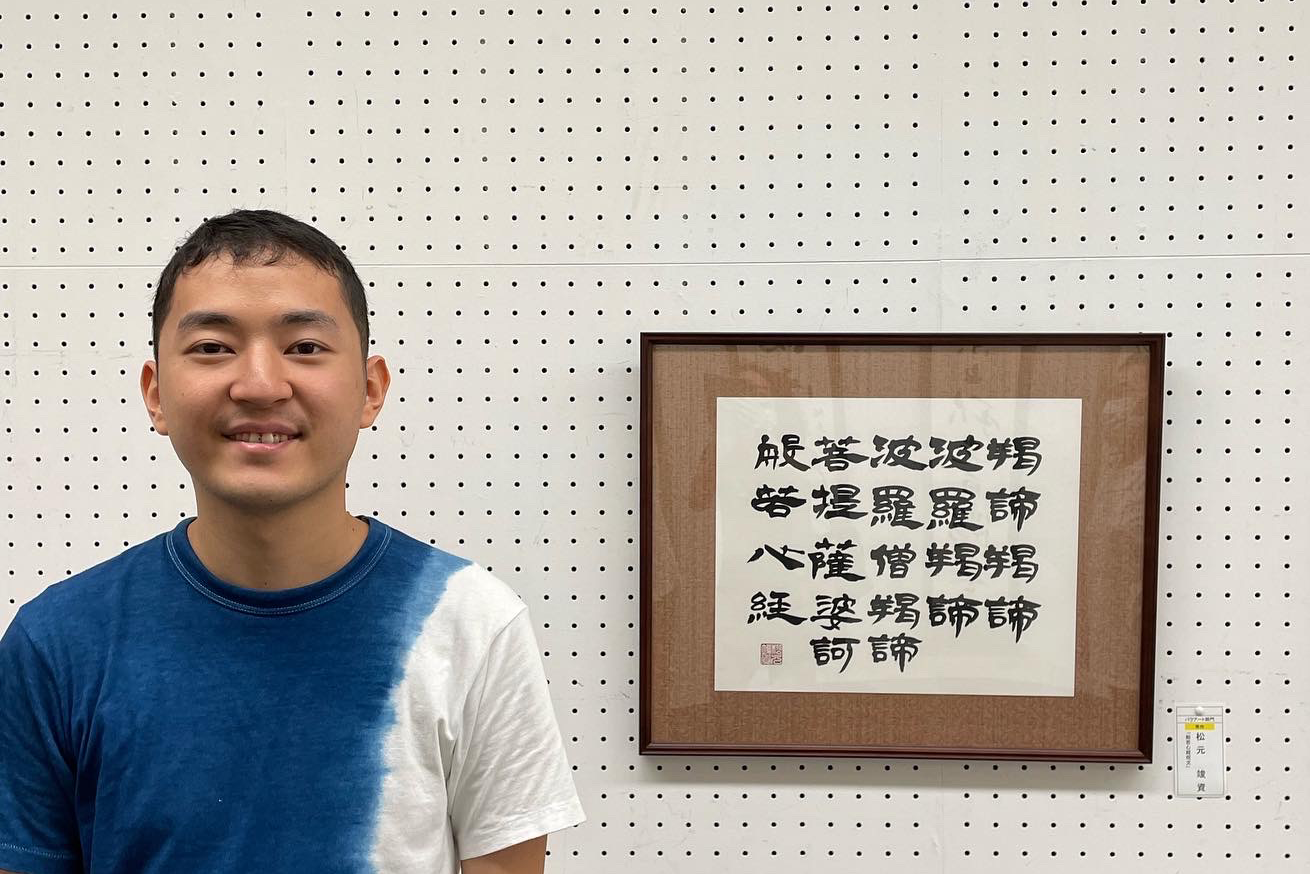 羯諦羯諦
波羅羯諦
波羅僧羯諦
菩提薩婆訶
般若心経
パラアート部門
松元 竣資